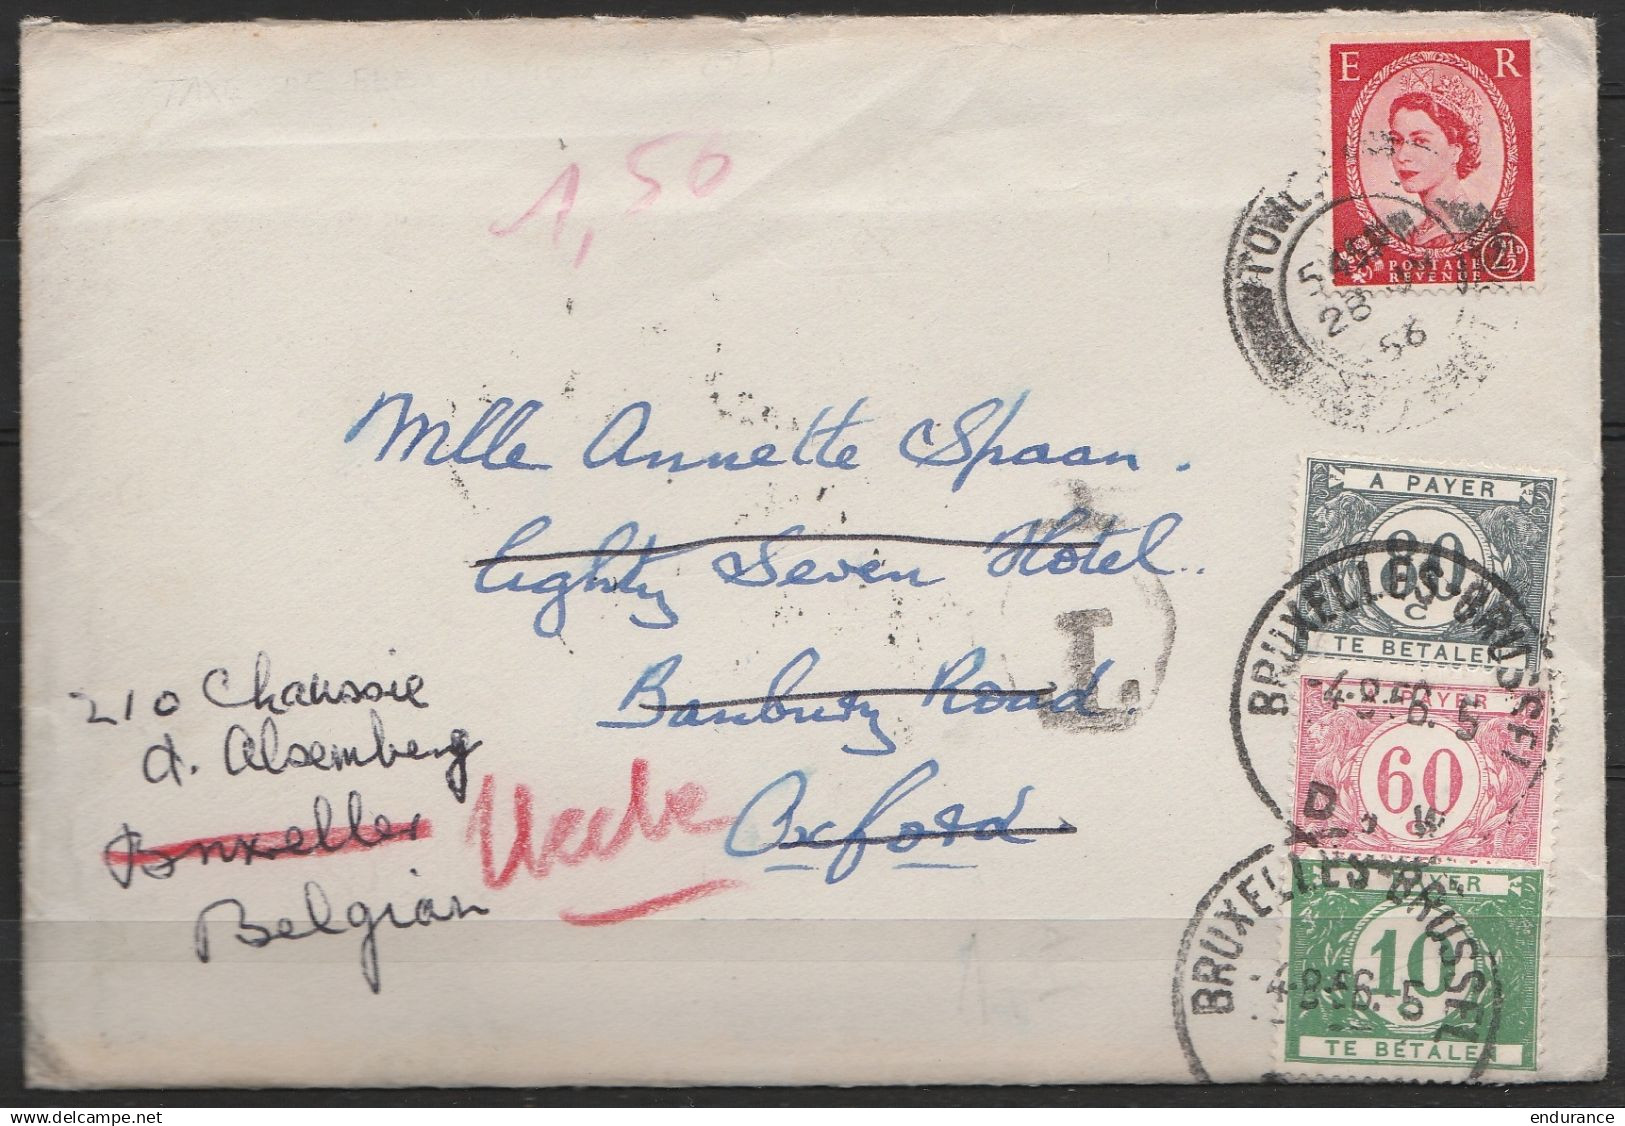 1,50
E R
POSTAGE
REVENUE 2½D
TOWC
5 45 PM
28
56
Mlle Annette Spaan.
Eighty Seven Hotel.
Banbury Road.
Oxford.
T
210 Chaussée
d. Alsemberg
Bruxelles
Belgian
Uccle
A PAYER
80
C
TE BETALEN
BRUXELLES-BRUSSEL
4-8-56. 5
D
A PAYER
60
A PAYER
10
TE BETALEN
BRUXELLES-BRUSSEL
4-8-56. 5
delcampe.net
endurance